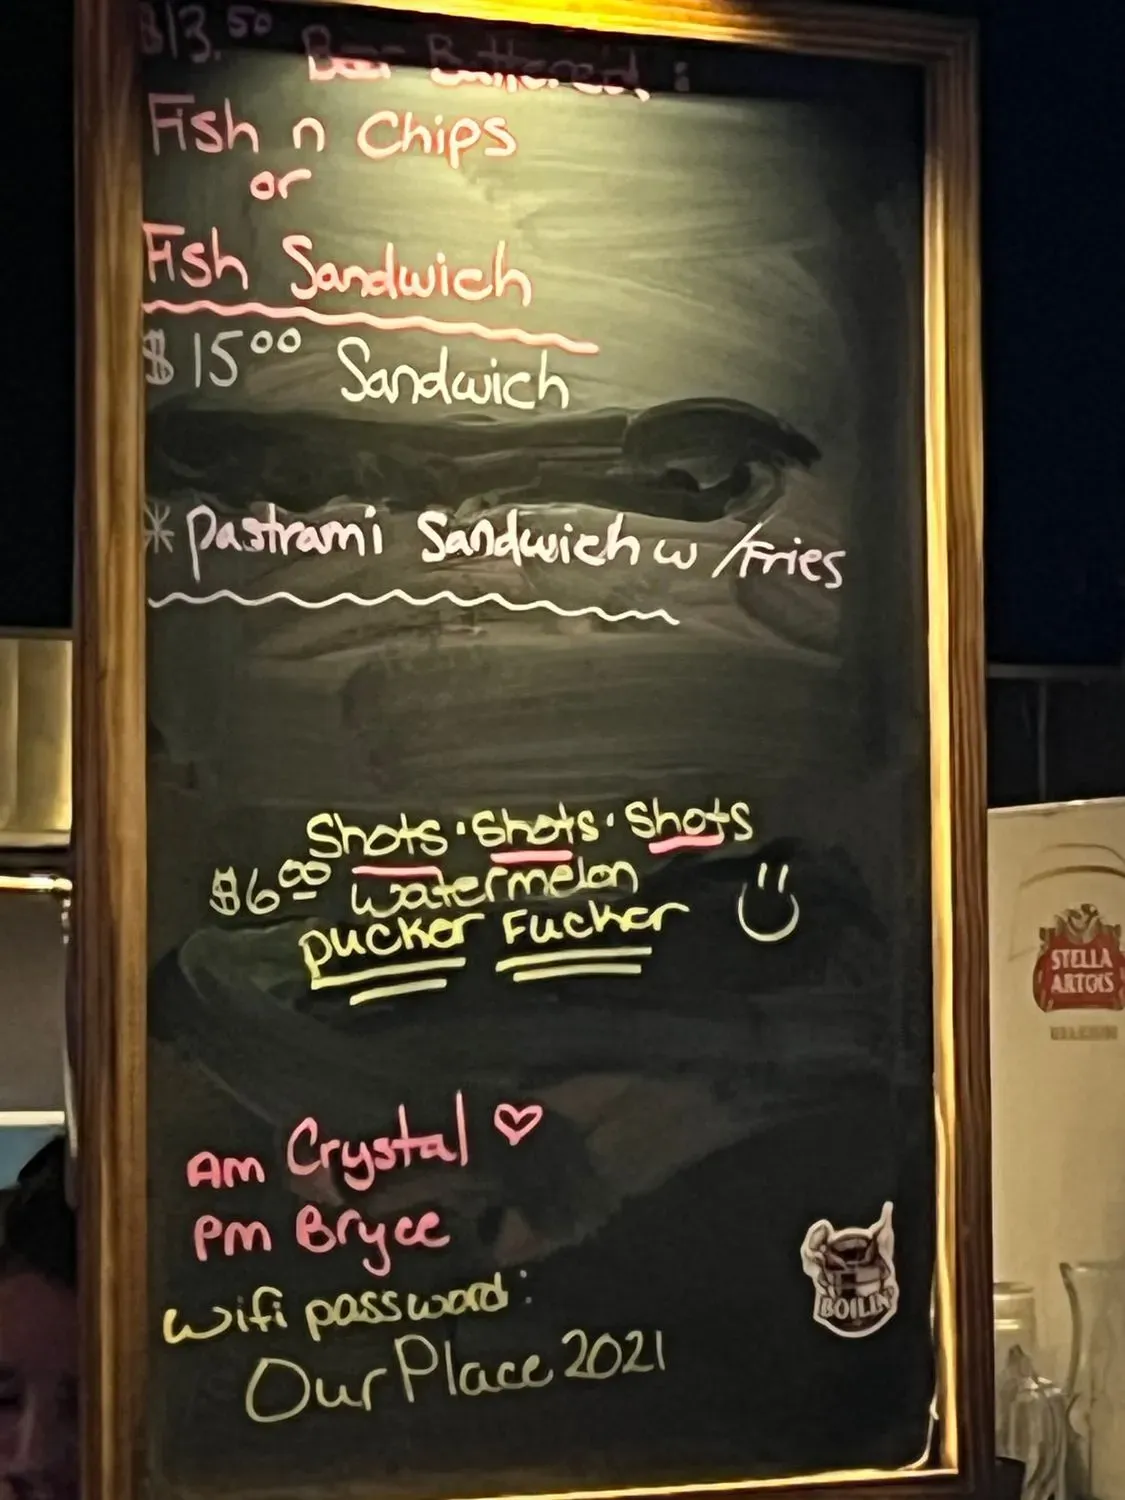 $13.50 Beer Battered:
Fish n Chips
or
Fish Sandwich
$15.00 Sandwich
* Pastrami Sandwich w/Fries
Shots · Shots · Shots
$6.00 watermelon
pucker Fucker
Am Crystal ♡
pm Bryce
wifi password:
OurPlace2021
BOILIN
STELLA
ARTOIS
BELGIUM